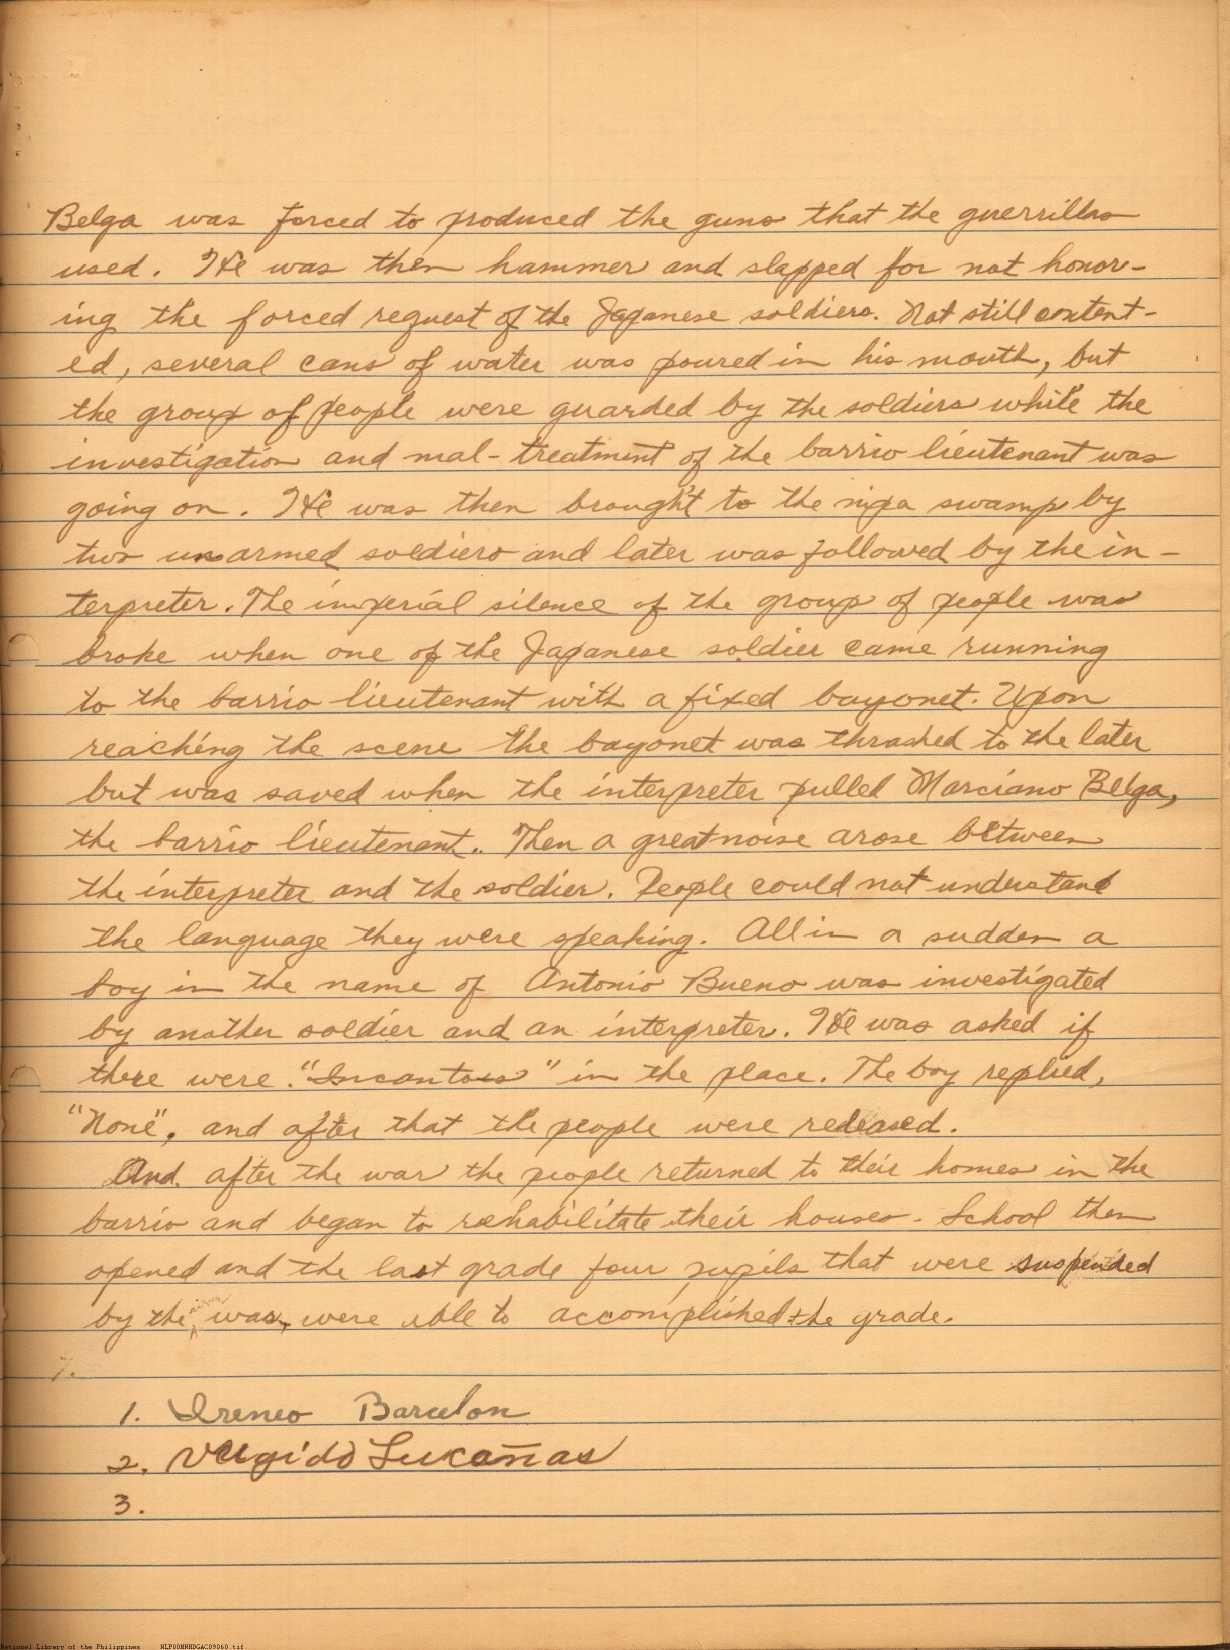 Belga was forced to produced the guns that the guerrillas
used. He was then hammer and slapped for not honor-
ing the forced request of the Japanese soldiers. Not still content-
ed, several cans of water was poured in his mouth, but
the group of people were guarded by the soldiers while the
investigation and mal-treatment of the barrio lieutenant was
going on. He was then brought to the nipa swamp by
two unarmed soldiers and later was followed by the in-
terpreter. The imperial silence of the group of people was
broke when one of the Japanese soldier came running
to the barrio lieutenant with a fixed bayonet. Upon
reaching the scene the bayonet was thrashed to the later
but was saved when the interpreter pulled Marciano Belga,
the barrio lieutenant. Then a great noise arose between
the interpreter and the soldier. People could not understand
the language they were speaking. All in a sudden a
boy in the name of Antonio Bueno was investigated
by another soldier and an interpreter. He was asked if
there were "Incantos" in the place. The boy replied,
"None", and after that the people were released.
And after the war the people returned to their homes in the
barrio and began to rehabilitate their houses. School then
opened and the last grade four pupils that were suspended
by the war, were able to accomplished the grade.
7.
1. Ireneo Barcelon
2. Lucañas
3.
National Library of the Philippines NLP00MNHDGAC09060.tif